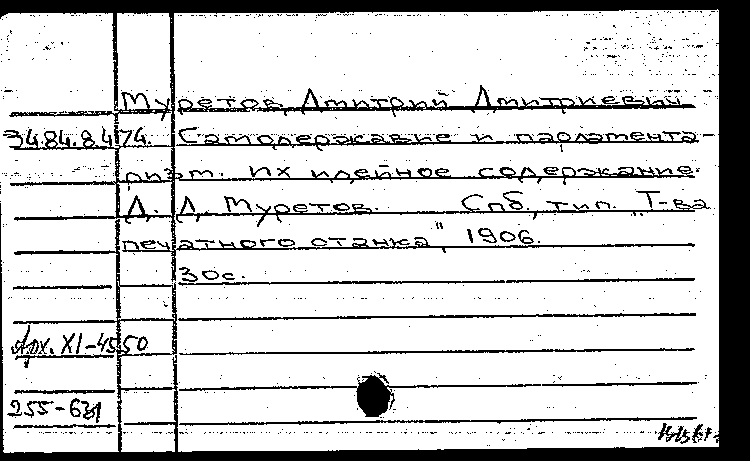 Муретов, Дмитрий Дмитриевич
34.84.8.474. Самодержавие и парламента-
ризм. Их идейное содержание.
Д. Д. Муретов. Спб, тип. „Т-ва
печатного станка", 1906.
30с.
Арх. XI-4550
255-631